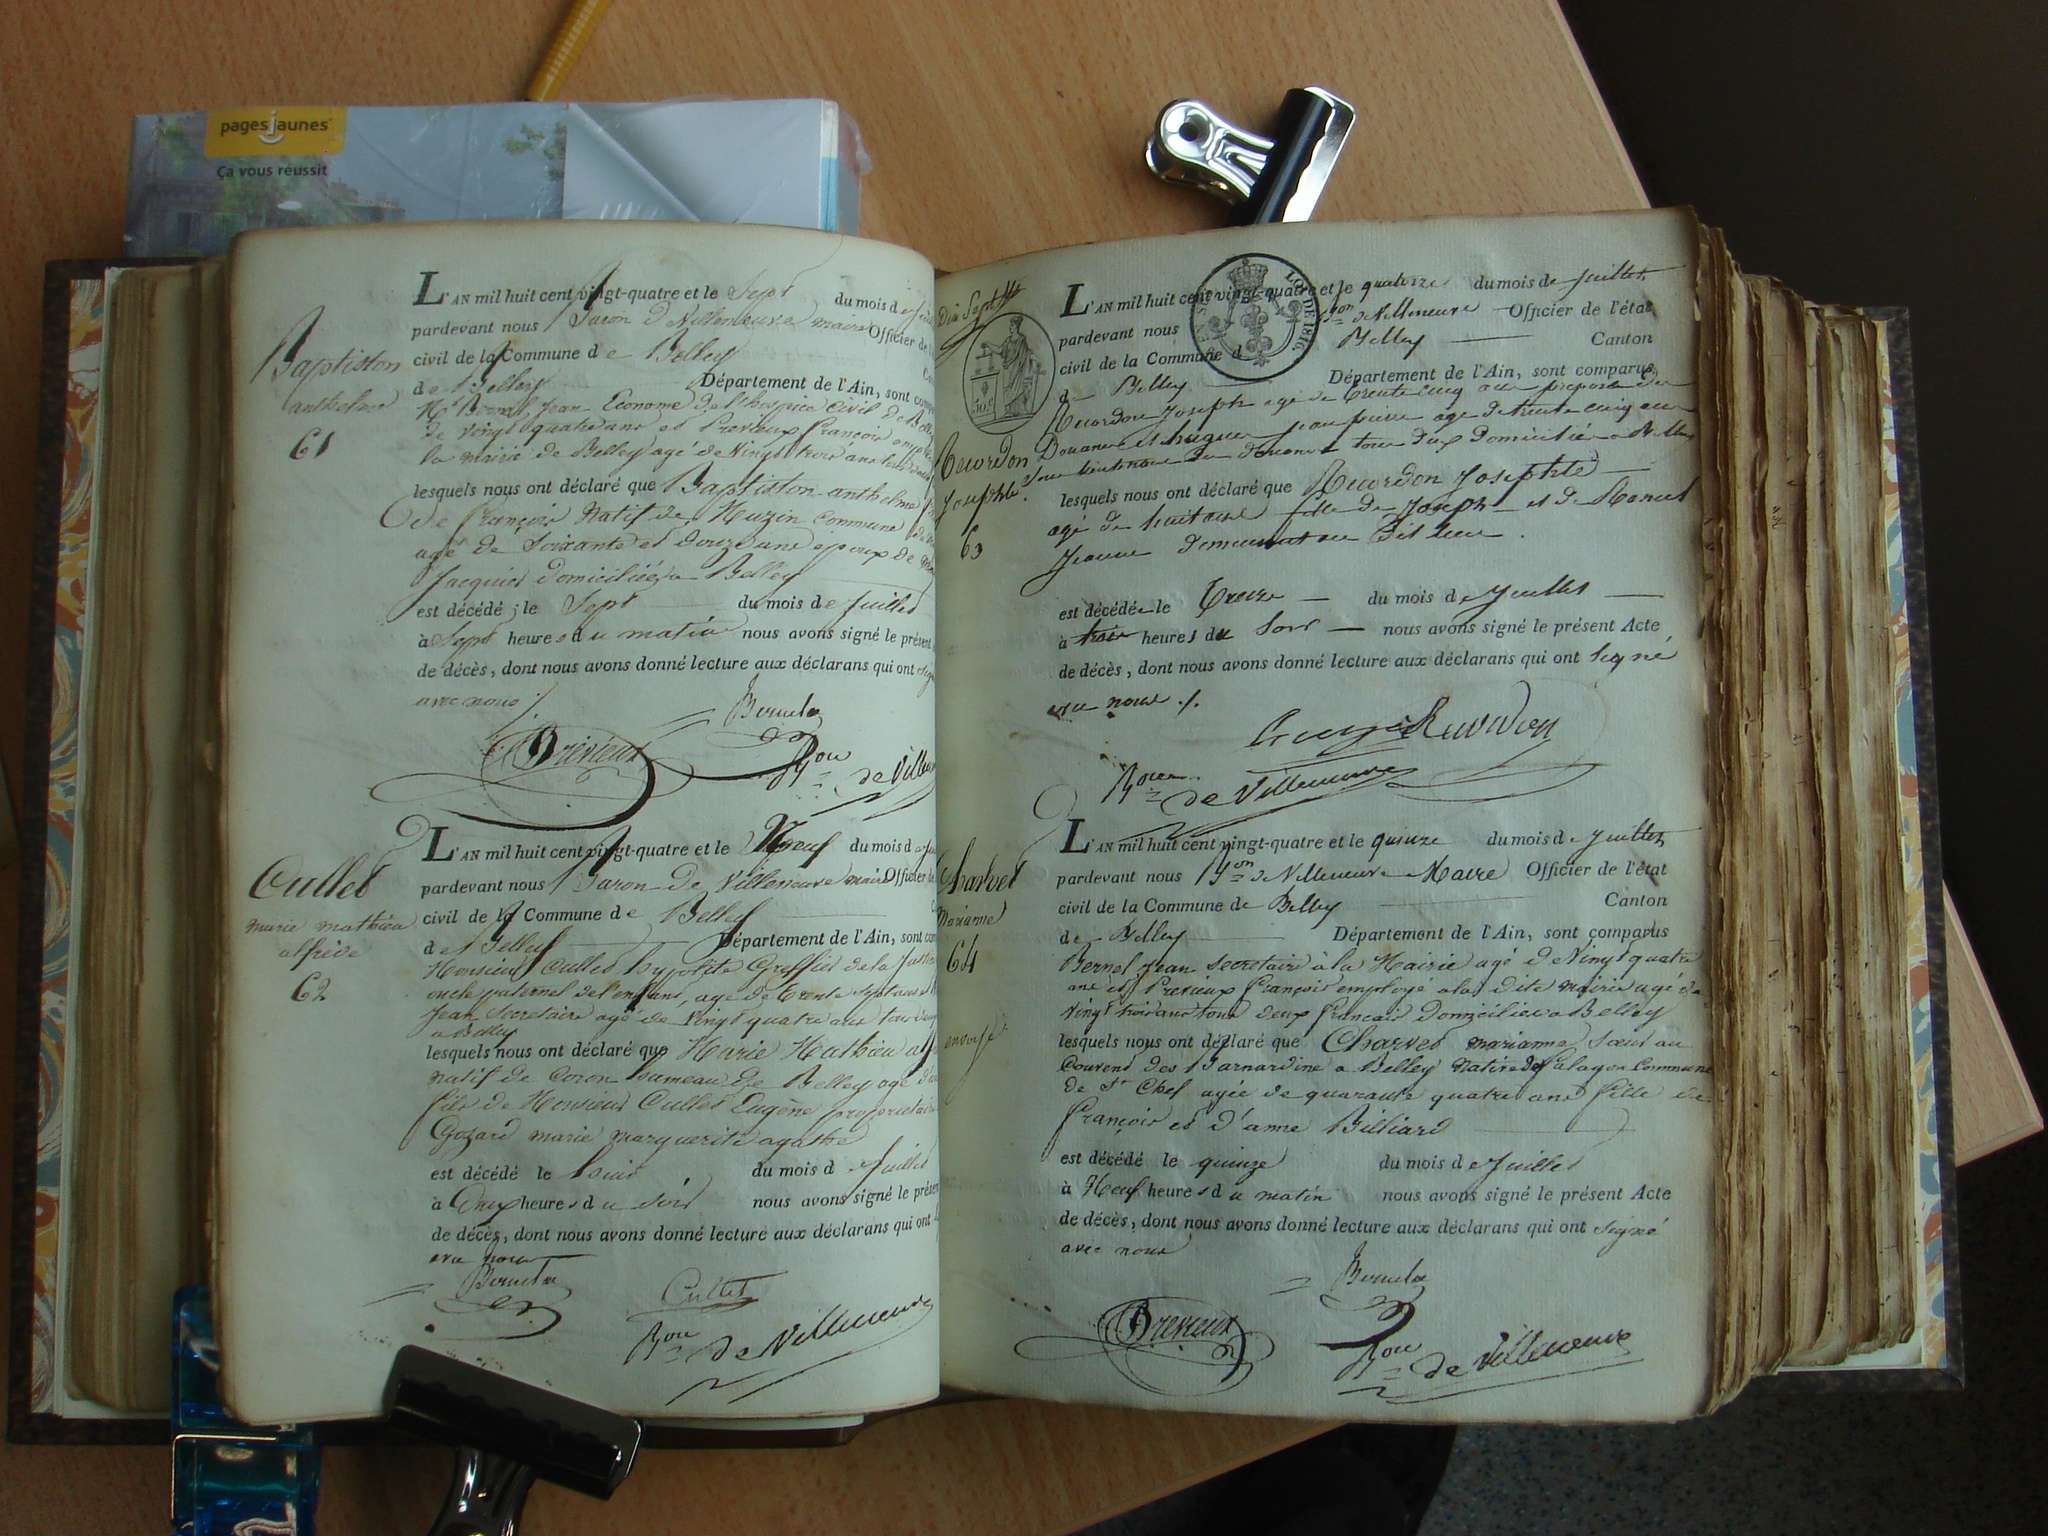 pagesjaunes
Ça vous réussit
L'AN mil huit cent vingt-quatre et le Sept du mois d
pardevant nous Baron de Villeneuve maire Officier de
civil de la Commune de Belley
de Belley Département de l'Ain, sont comp
Baptiston
anthelme
61
Jean Econome de l'hospice Civil de
de vingt quatre ans et Previeux françois
la mairie de Belley agé de Vingt trois ans
lesquels nous ont déclaré que Baptiston anthelme
de françois Natif de commune
agé de Soixante et douze ans époux de
Jacquier domicilié a Belley
est décédé le Sept du mois de juillet
à Sept heures du matin nous avons signé le présent
de décès, dont nous avons donné lecture aux déclarans qui ont signé
avec nous
Prévieux
Bon de Villeneuve
L'AN mil huit cent vingt-quatre et le Neuf du mois de
pardevant nous Baron de Villeneuve maire Officier
civil de la Commune de Belley
de Belley Département de l'Ain, sont com
Cullet
marie mathieu
alfrède
62
Monsieur Cullet hypolite Greffier de la
oncle paternel de l'enfant, agé de trente sept ans
Jean Secretaire agé de Vingt quatre ans tous deux
a Belley
lesquels nous ont déclaré que Marie Mathieu
natif de Coron hameau de Belley agé
fils de Monsieur Cullet Eugène proprietaire
marie marguerite agathe
est décédé le huit du mois de juillet
à heures du soir nous avons signé le présent
de décès, dont nous avons donné lecture aux déclarans qui ont
avec nous
Cullet
Bon de Villeneuve
Dix Sept
LOI DE 1816
L'AN mil huit cent vingt-quatre et le quatorze du mois de juillet
pardevant nous Bon de Villeneuve Officier de l'état
civil de la Commune d Belley Canton
de Belley Département de l'Ain, sont comparus
Joseph agé de trente cinq ans preposé des
Douanes et pierre agé de trente cinq ans
tous deux domiciliés a Belley
Josephte
63
lesquels nous ont déclaré que Josephte
agé de huit ans fille de Joseph et de
Jeanne
est décédée le treize du mois de juillet
à trois heures du soir nous avons signé le présent Acte
de décès, dont nous avons donné lecture aux déclarans qui ont signé
avec nous
Bon de Villeneuve
L'AN mil huit cent vingt-quatre et le quinze du mois de juillet
pardevant nous Bon de Villeneuve Maire Officier de l'état
civil de la Commune de Belley Canton
de Belley Département de l'Ain, sont comparus
Charvet
Marianne
64
Bernel Jean Secretaire à la Mairie agé de Vingt quatre
ans et Previeux françois employé a la dite mairie agé de
vingt trois ans tous deux francais domiciliés a Belley
lesquels nous ont déclaré que Charvet marianne Sœur au
Couvent des Barnardine a Belley Native de commune
de St Chef agée de quarante quatre ans fille de
François et d'anne Billiard
est décédé le quinze du mois de juillet
à Neuf heures du matin nous avons signé le présent Acte
de décès, dont nous avons donné lecture aux déclarans qui ont signé
avec nous
Prévieux
Bon de Villeneuve